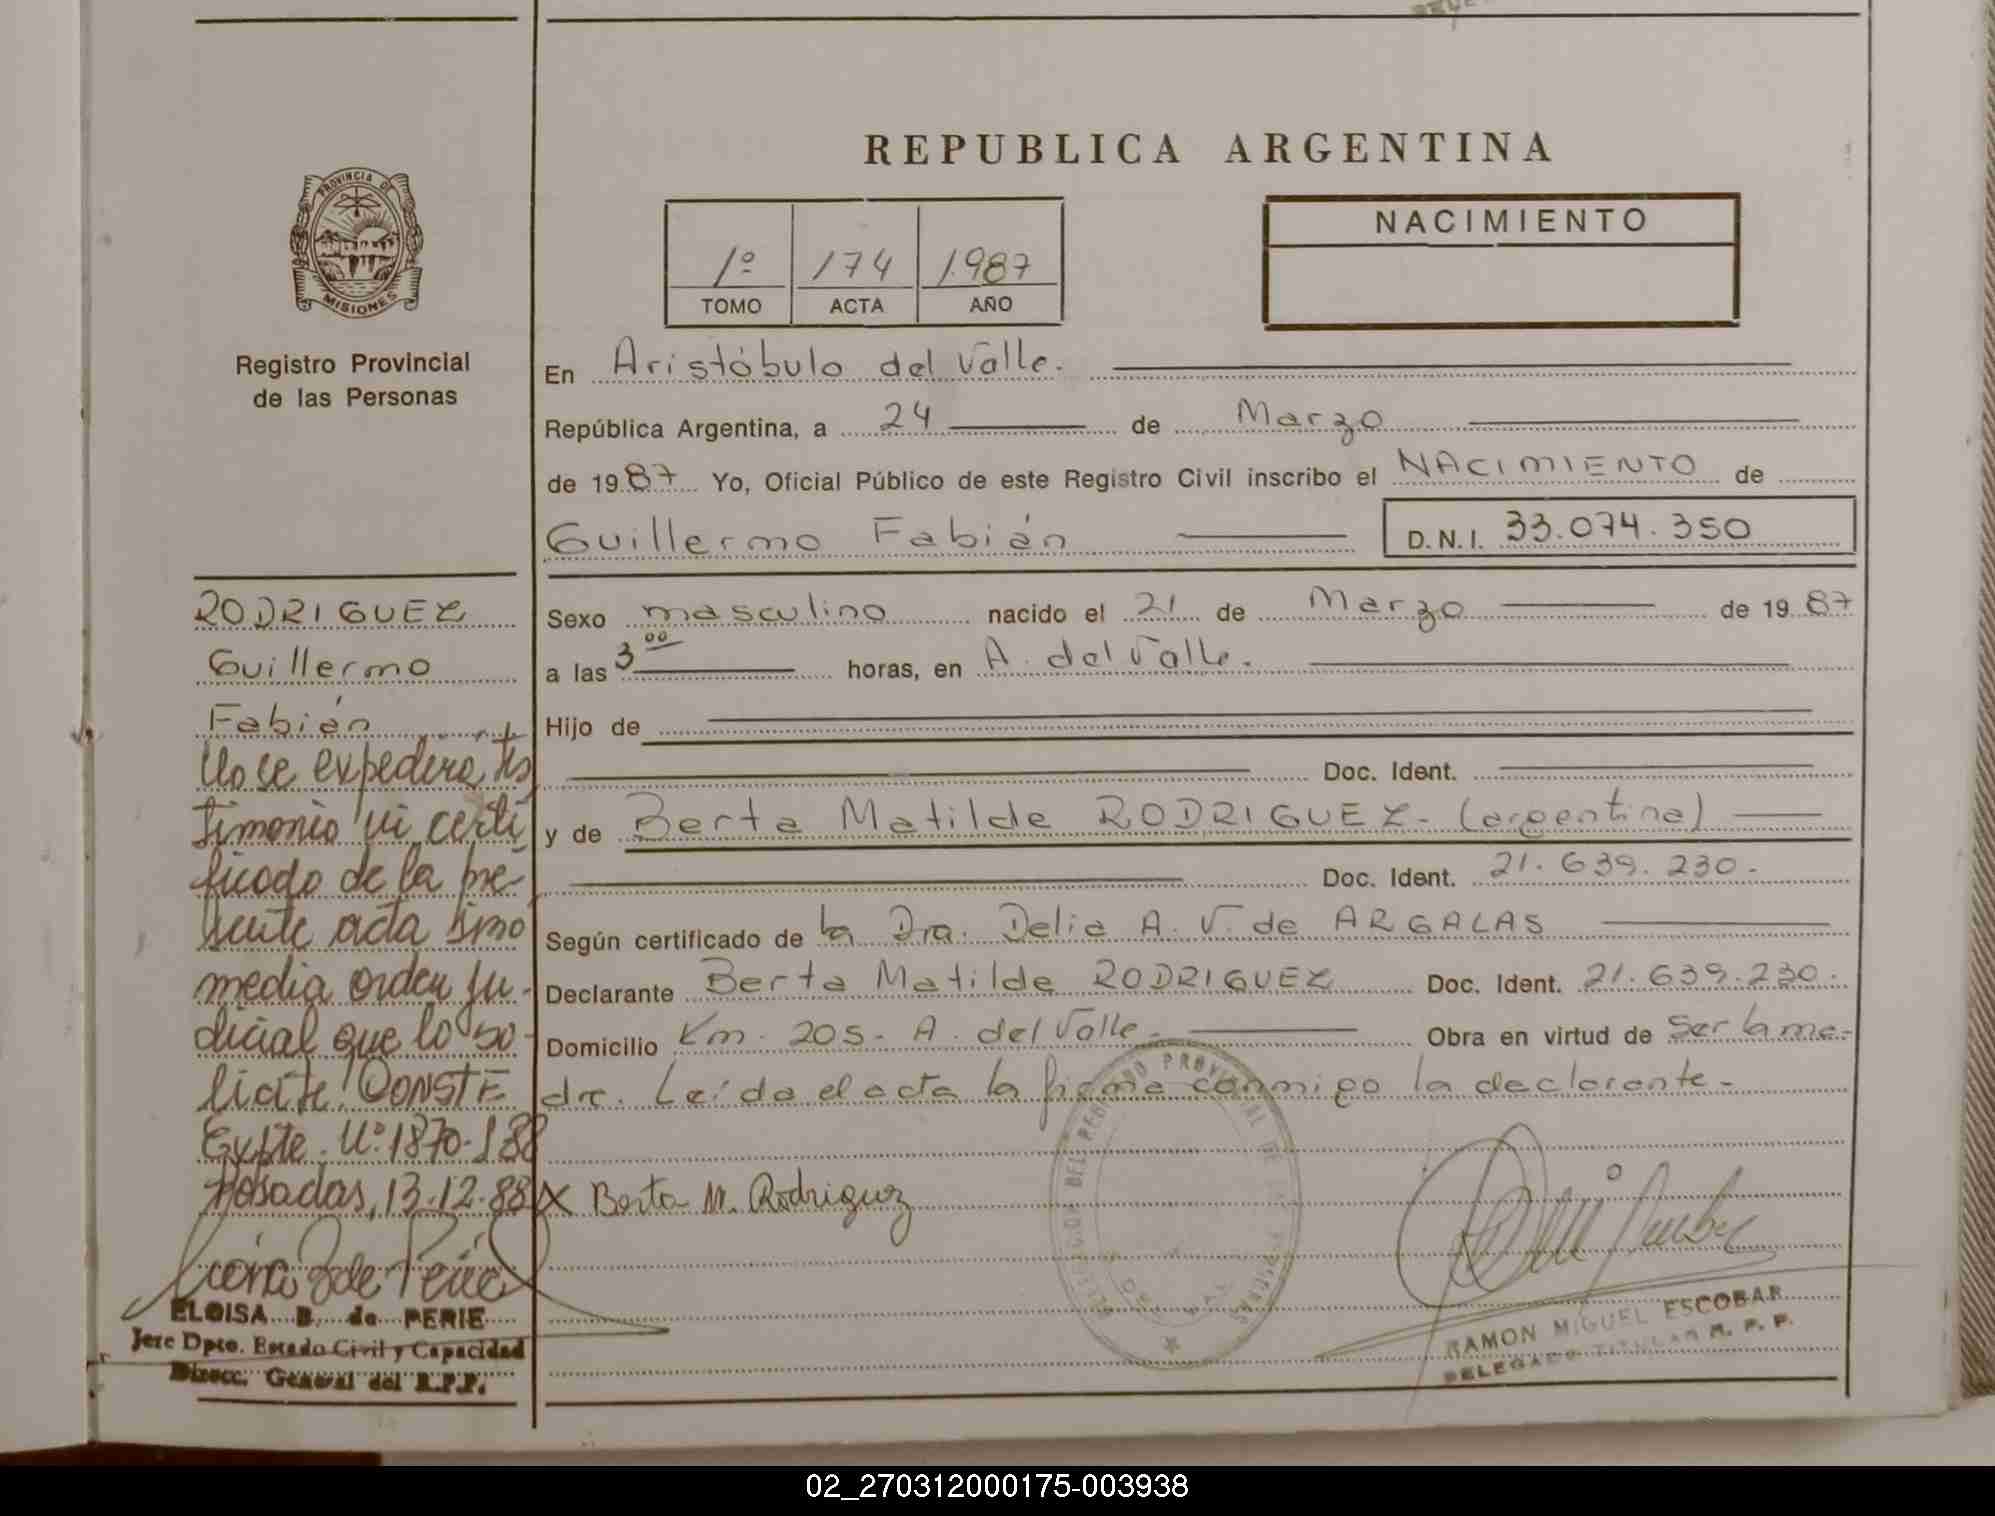 REPUBLICA ARGENTINA
PROVINCIA DE
MISIONES
Registro Provincial
de las Personas
1º 174 1987
TOMO ACTA AÑO
NACIMIENTO
En Aristóbulo del Valle.
República Argentina, a 24 de Marzo
de 1987 Yo, Oficial Público de este Registro Civil inscribo el NACIMIENTO de
Guillermo Fabián D.N.I. 33.074.350
RODRIGUEZ
Guillermo
Fabián
No se expedirá tes
timonio ni certi
ficado de la pre-
sente acta sino
media orden ju-
dicial que lo so-
licite! CONSTE
Expte. Nº 1870-J-88
Posadas, 13-12-88
ELOISA B. de PERIE
Jefe Dpto. Estado Civil y Capacidad
Direcc. General del R.P.P.
Sexo masculino nacido el 21 de Marzo de 1987
a las 3 00 horas, en A. del Valle.
Hijo de
Doc. Ident.
y de Berta Matilde RODRIGUEZ- (argentina)
Doc. Ident. 21.639.230.
Según certificado de la Dra. Delia A. V. de ARGALAS
Declarante Berta Matilde RODRIGUEZ Doc. Ident. 21.639.230.
Domicilio Km. 205- A. del Valle- Obra en virtud de Ser la ma-
dre. Leída el acta la firma conmigo la declarante-
X Berta M. Rodriguez
RAMON MIGUEL ESCOBAR
DELEGADO TITULAR R. P. P.
02_270312000175-003938